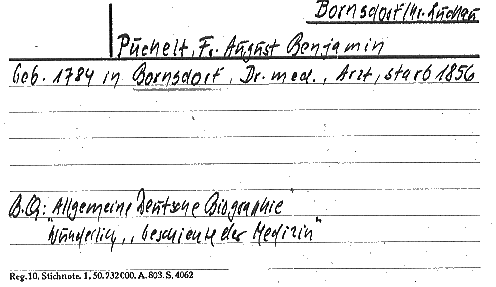 Bornsdorf/Kr. Luckau
Puchelt, Fr. August Benjamin
Geb. 1784 in Bornsdorf, Dr. med., Arzt, starb 1856
B.Q: "Allgemeine Deutsche Biographie"
Wunderlich, "Geschichte der Medizin"
Reg. 10. Stichnote. 1, 50. 732000. A. 803. S. 4062